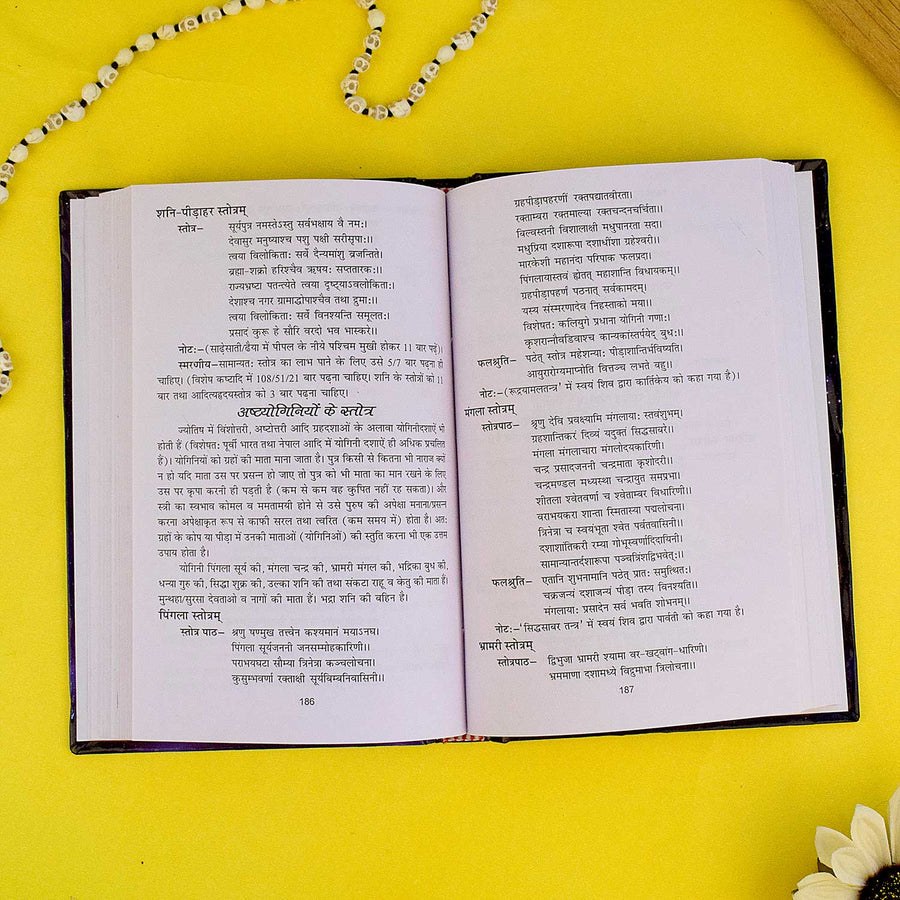 शनि-पीड़ाहर स्तोत्रम्
स्तोत्र– सूर्यपुत्र नमस्तेऽस्तु सर्वभक्षाय वै नमः।
देवासुर मनुष्याश्च पशु पक्षी सरीसृपाः।।
त्वया विलोकिताः सर्वे दैन्यमांशु व्रजन्तिते।
ब्रह्मा-शक्रो हरिश्चैव ऋषयः सप्ततारकः।।
राज्यभ्रष्टा पतन्त्येते त्वया दृष्ट्याऽवलोकिते।
देशाश्च नगर ग्रामाद्धोपाश्चैव तथा द्रुमाः।।
त्वया विलोकिताः सर्वे विनश्यन्ति समूलतः।
प्रसादं कुरू हे सौरि वरदो भव भास्करे।।
नोट:–(साढ़ेसाती/ढैया में पीपल के नीचे पश्चिम मुखी होकर 11 बार पढ़ें)।
स्मरणीय–सामान्यतः स्तोत्र का लाभ पाने के लिए उसे 5/7 बार पढ़ना ही
चाहिए। (विशेष कष्टादि में 108/51/21 बार पढ़ना चाहिए)। शनि के स्तोत्रों को 11
बार तथा आदित्यहृदयस्तोत्र को 3 बार पढ़ना चाहिए।
अष्टयोगिनियों के स्तोत्र
ज्योतिष में विंशोत्तरी, अष्टोत्तरी आदि ग्रहदशाओं के अलावा योगिनीदशाएं भी
होती हैं (विशेषतः पूर्वी भारत तथा नेपाल आदि में योगिनी दशाएं ही अधिक प्रचलित
हैं)। योगिनियों को ग्रहों की माता माना जाता है। पुत्र किसी से कितना भी नाराज क्यों
न हो यदि माता उस पर प्रसन्न हो जाए तो पुत्र को भी माता का मान रखने के लिए
उस पर कृपा करनी ही पड़ती है (कम से कम वह कुपित नहीं रह सकता)। और
स्त्री का स्वभाव कोमल व ममतामयी होने से उसे पुरुष की अपेक्षा मनाना/प्रसन्न
करना अपेक्षाकृत रूप से काफी सरल तथा त्वरित (कम समय में) होता है। अतः
ग्रहों के कोप या पीड़ा में उनकी माताओं (योगिनिओं) की स्तुति करना भी एक उत्तम
उपाय होता है।
योगिनी पिंगला सूर्य की, मंगला चन्द्र की, भ्रामरी मंगल की, भद्रिका बुध की,
धन्या गुरु की, सिद्धा शुक्र की, उल्का शनि की तथा संकटा राहू व केतु की माता हैं।
मुन्थहा/सुरसा देवताओं व नागों की माता हैं। भद्रा शनि की बहिन है।
पिंगला स्तोत्रम्
स्तोत्र पाठ– श्रणु षण्मुख तत्त्वेन कश्यमानं मयाऽनघ।
पिंगला सूर्यजननी जनसम्मोहकारिणी।।
पराभयघटा सौम्या त्रिनेत्रा कञ्चलोचना।
कुसुम्भवर्णा रक्ताक्षी सूर्यबिम्बनिवासिनी।।
186
ग्रहपीड़ापहरणीं रक्तपद्यातवीरता।
रक्ताम्बरा रक्तमाल्या रक्तचन्दनचर्चिता।।
विल्वस्तनी विशालाक्षी मधुपानरता सदा।
मधुप्रिया दशारूपा दशाधींशा ग्रहेश्वरी।।
मारकेशी महानंदा परिपाक फलप्रदा।
पिंगलायास्तवं ह्येतत् महाशान्ति विधायकम्।
ग्रहपीड़ापहर्णं पठनात् सर्वकामदम्।
यस्य संस्मरणादेव निहस्ताको मया।।
विशेषतः कलियुगे प्रधाना योगिनी गणाः।
कृशरान्नौवडिवाश्च कान्यकांस्तर्पयेद् बुधः।।
फलश्रुति– पठेत् स्तोत्र महेशन्याः पीड़ाशान्तिर्भविष्यति।
आयुरारोग्यमाप्नोति वित्तञ्च लभते वहु।।
नोट:–(रूद्रयामलतन्त्र' में स्वयं शिव द्वारा कार्तिकेय को कहा गया है)।
मंगला स्तोत्रम्
स्तोत्रपाठ– श्रृणु देवि प्रवक्ष्यामि मंगलायाः स्तवंशुभम्।
ग्रहशान्तिकरं दिव्यं यदुक्तं सिद्धसाबरे।।
मंगला मंगलाचारा मंगलोदयकारिणी।
चन्द्र प्रसादजननी चन्द्रमाता कृशोदरी।।
चन्द्रमण्डल मध्यस्था चन्द्रायुत समप्रभा।
शीतला श्वेतवर्णा च श्वेताम्बर विधारिणी।।
वराभयकरा शान्ता स्मितास्या पद्मलोचना।
त्रिनेत्रा च स्वयंभूता श्वेत पर्वतवासिनी।
दशाशांतिकरी रम्या गोभूस्वर्णादिदायिनी।
सामान्यान्तर्दशारूपा पञ्चत्रिंशद्विभवेत्:।।
फलश्रुति– एतानि शुभनामानि पठेत् प्रातः समुत्थितः।
चक्रजन्यं दशाजन्यं पीड़ा तस्य विनश्यति।।
मंगलायाः प्रसादेन सर्वं भवति शोभनम्।।
नोट:–'सिद्धसाबर तन्त्र' में स्वयं शिव द्वारा पार्वती को कहा गया है।
भ्रामरी स्तोत्रम्
स्तोत्रपाठ– द्विभुजा भ्रामरी श्यामा वर-खट्वांग-धारिणी।
भ्रममाणा दशामध्ये विद्रुमाभा त्रिलोचना।।
187